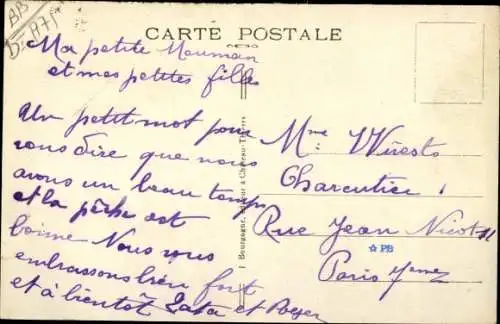 CARTE POSTALE
Ma petite Mouman
et mes petites filles
Un petit mot pour
vous dire que nous
avons un beau temps
et la pêche est
bonne Nous vous
embrassons bien fort
et à bientôt et Roger
Mme
Charcutier
Rue Jean Nicot 11
Paris 7eme
☆PB
J Bourgogne, éditeur à Château-Thierry